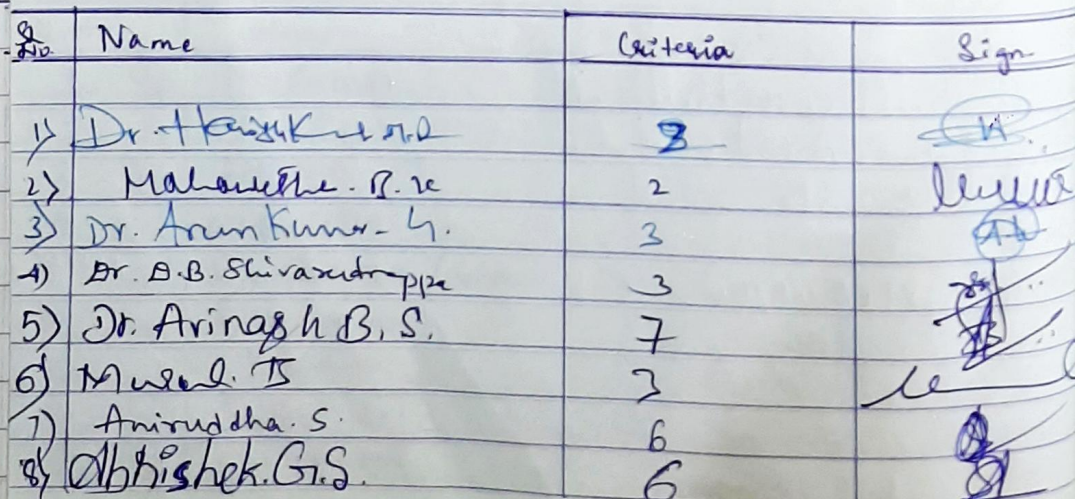 Sl No. Name Criteria Sign
1) Dr. Harish Kumar M.R 3
2) B.K 2
3) Dr. Arun Kumar. G. 3
4) Dr. D.B. Shivarudrappa 3
5) Dr. Arinash B.S. 7
6) B 3
7) Aniruddha. S. 6
8) Abhishek. G.S. 6